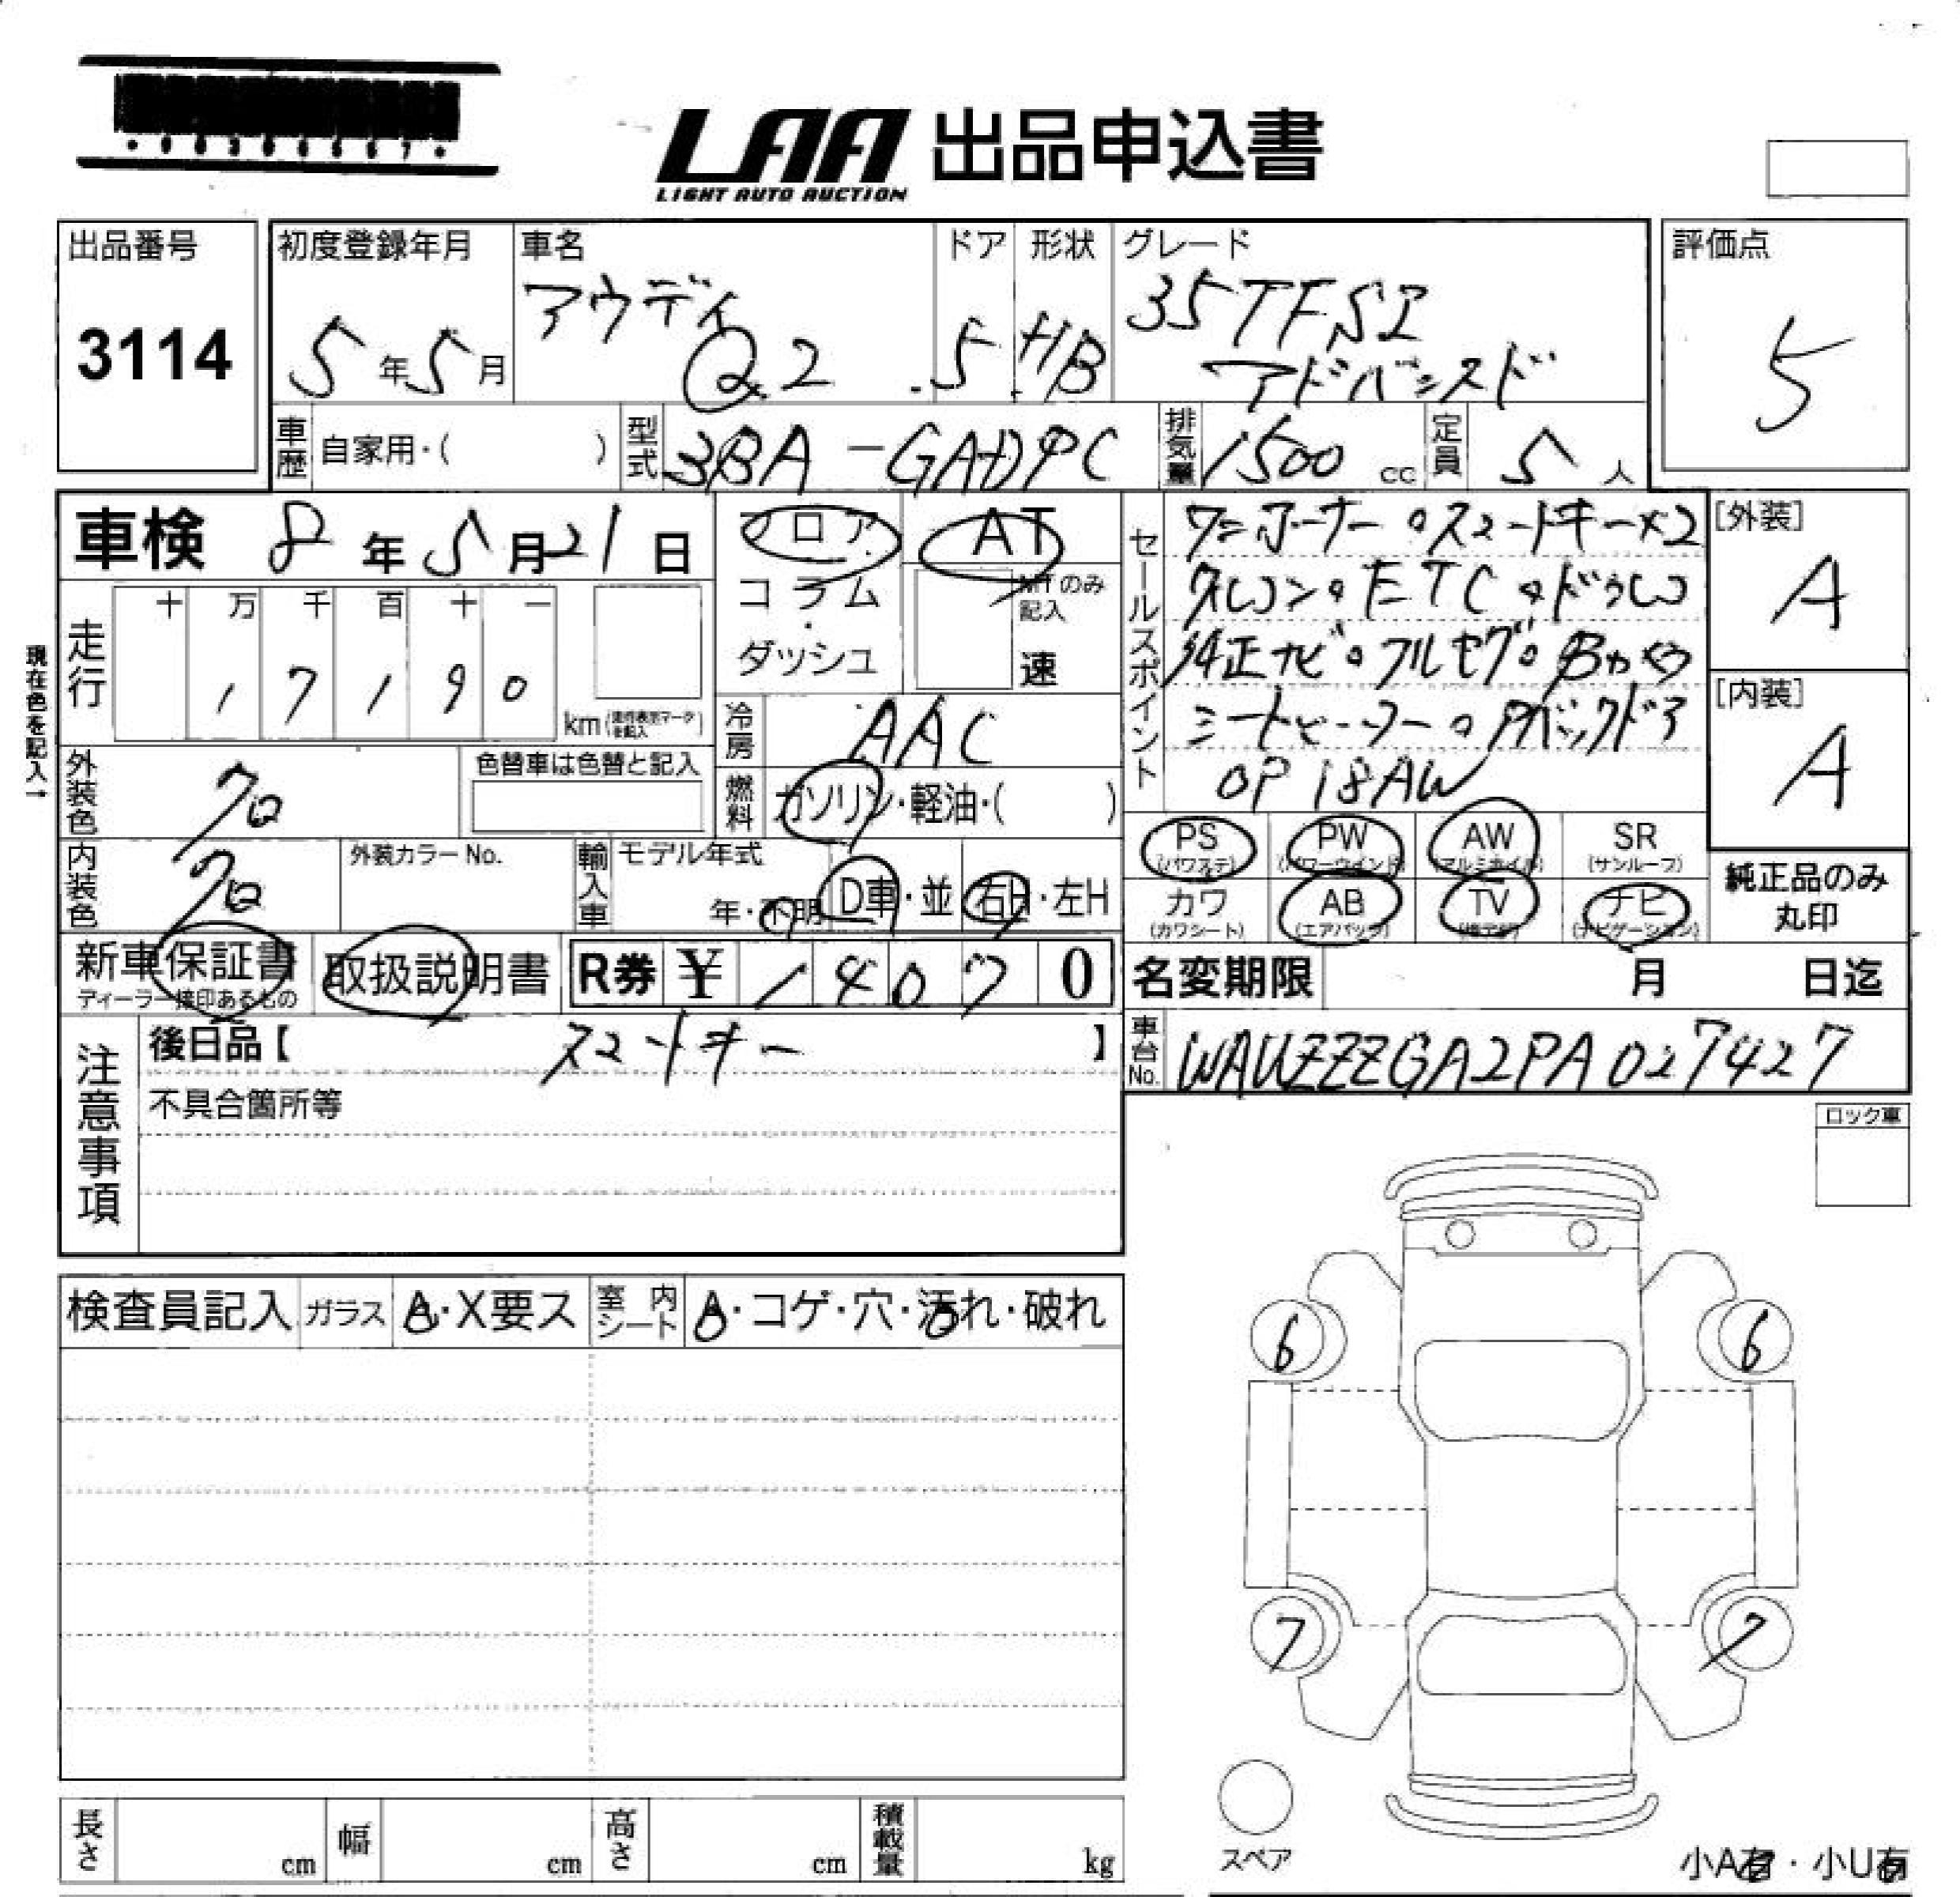 LAA 出品申込書
LIGHT AUTO AUCTION
出品番号
3114
初度登録年月
5年5月
車名
アウディ
Q2
ドア
5
形状
HB
グレード
35TFSI
アドバンスド
評価点
5
車歴 自家用・( )
型式 3BA-GADPC
排気量 1500 cc
定員 5 人
車検 8年5月21日
フロア
コラム
・
ダッシュ
AT
MTのみ
記入
速
現在色を記入→
走行
十 万 千 百 十 一
1 7 1 9 0
km
冷房 AAC
外装色 クロ
色替車は色替と記入
燃料 ガソリン・軽油・( )
内装色 クロ
外装カラーNo.
輸入車 モデル年式
年・不明 D車・並 右H・左H
セールスポイント
ワンオーナー。スマートキー×2
クリソン。ETC。ドラレコ
純正ナビ。フルセグ。Bカメラ
シートヒーター。Pバックドア
OP 18AW
[外装]
A
[内装]
A
PS
(パワステ)
PW
(パワーウインド)
AW
(アルミホイル)
SR
(サンルーフ)
カワ
(カワシート)
AB
(エアバック)
TV
ナビ
(ナビゲーション)
純正品のみ
丸印
新車保証書
ディーラー捺印あるもの
取扱説明書
R券 ¥ 1 4 0 7 0
名変期限 月 日迄
車台No. WAUZZZGA2PA027427
注意事項
後日品【 スマートキー 】
不具合箇所等
ロック車
検査員記入 ガラス A・X要ス 室内シート A・コゲ・穴・汚れ・破れ
6 6
7 7
スペア
長さ cm 幅 cm 高さ cm 積載量 kg
小A有・小U有